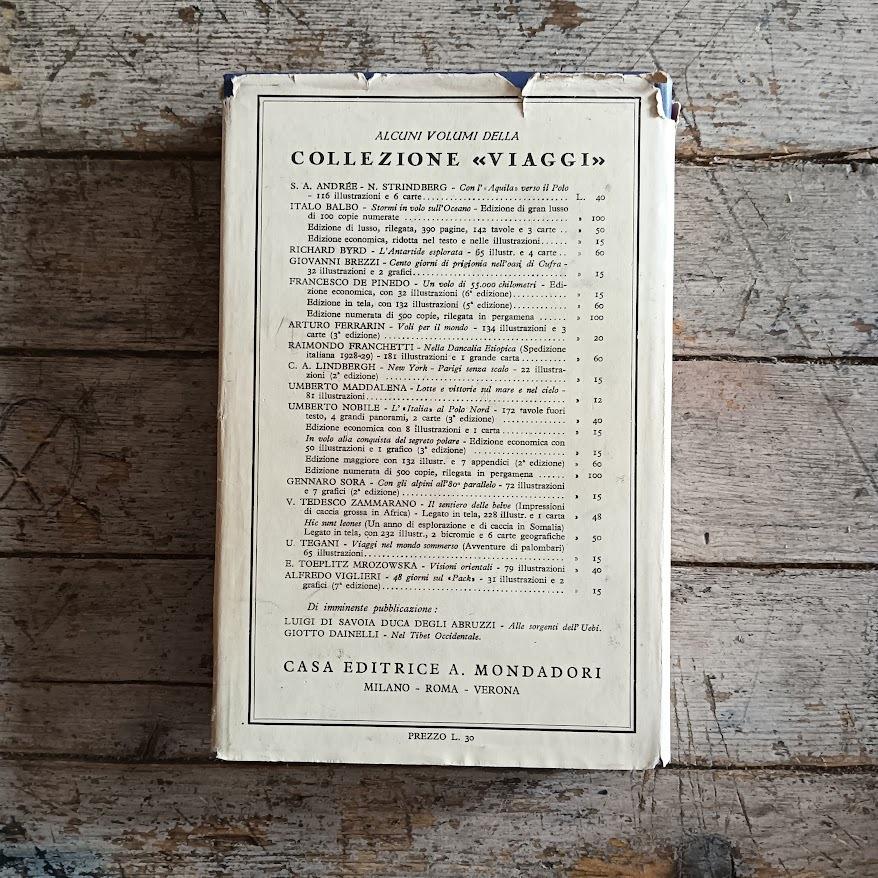 ALCUNI VOLUMI DELLA
COLLEZIONE «VIAGGI»
S. A. ANDRÉE - N. STRINDBERG - Con l' «Aquila» verso il Polo
- 116 illustrazioni e 6 carte . . . . . . . . . . . . . . . . . . . . L. 40
ITALO BALBO - Stormi in volo sull'Oceano - Edizione di gran lusso
di 100 copie numerate . . . . . . . . . . . . . . . . . . . . » 100
Edizione di lusso, rilegata, 390 pagine, 142 tavole e 3 carte . . » 50
Edizione economica, ridotta nel testo e nelle illustrazioni . . . . . . » 15
RICHARD BYRD - L'Antartide esplorata - 65 illustr. e 4 carte . . » 60
GIOVANNI BREZZI - Cento giorni di prigionia nell'oasi di Cufra -
32 illustrazioni e 2 grafici . . . . . . . . . . . . . . . . . . . . » 15
FRANCESCO DE PINEDO - Un volo di 55.000 chilometri - Edi-
zione economica, con 32 illustrazioni (6ª edizione) . . . . . . . . . . » 15
Edizione in tela, con 132 illustrazioni (5ª edizione) . . . . . . . . . . » 60
Edizione numerata di 500 copie, rilegata in pergamena . . . . . . » 100
ARTURO FERRARIN - Voli per il mondo - 134 illustrazioni e 3
carte (3ª edizione) . . . . . . . . . . . . . . . . . . . . » 20
RAIMONDO FRANCHETTI - Nella Dancalia Etiopica (Spedizione
italiana 1928-29) - 181 illustrazioni e 1 grande carta . . . . . . . . » 60
C. A. LINDBERGH - New York - Parigi senza scalo - 22 illustra-
zioni (2ª edizione) . . . . . . . . . . . . . . . . . . . . » 15
UMBERTO MADDALENA - Lotte e vittorie sul mare e nel cielo -
81 illustrazioni . . . . . . . . . . . . . . . . . . . . » 12
UMBERTO NOBILE - L' «Italia» al Polo Nord - 172 tavole fuori
testo, 4 grandi panorami, 2 carte (3ª edizione) . . . . . . . . . . . . » 40
Edizione economica con 8 illustrazioni e 1 carta . . . . . . . . . . . . » 15
In volo alla conquista del segreto polare - Edizione economica con
50 illustrazioni e 1 grafico (3ª edizione) . . . . . . . . . . . . . . » 15
Edizione maggiore con 132 illustr. e 7 appendici (2ª edizione) » 60
Edizione numerata di 500 copie, rilegata in pergamena . . . . . . » 100
GENNARO SORA - Con gli alpini all'80º parallelo - 72 illustrazioni
e 7 grafici (2ª edizione) . . . . . . . . . . . . . . . . . . . . » 15
V. TEDESCO ZAMMARANO - Il sentiero delle belve (Impressioni
di caccia grossa in Africa) - Legato in tela, 228 illustr. e 1 carta » 48
Hic sunt leones (Un anno di esplorazione e di caccia in Somalia)
Legato in tela, con 232 illustr., 2 bicromie e 6 carte geografiche » 50
U. TEGANI - Viaggi nel mondo sommerso (Avventure di palombari)
65 illustrazioni . . . . . . . . . . . . . . . . . . . . » 15
E. TOEPLITZ MROZOWSKA - Visioni orientali - 79 illustrazioni » 40
ALFREDO VIGLIERI - 48 giorni sul «Pack» - 31 illustrazioni e 2
grafici (7ª edizione) . . . . . . . . . . . . . . . . . . . . » 15
Di imminente pubblicazione :
LUIGI DI SAVOIA DUCA DEGLI ABRUZZI - Alle sorgenti dell' Uebi.
GIOTTO DAINELLI - Nel Tibet Occidentale.
CASA EDITRICE A. MONDADORI
MILANO - ROMA - VERONA
PREZZO L. 30